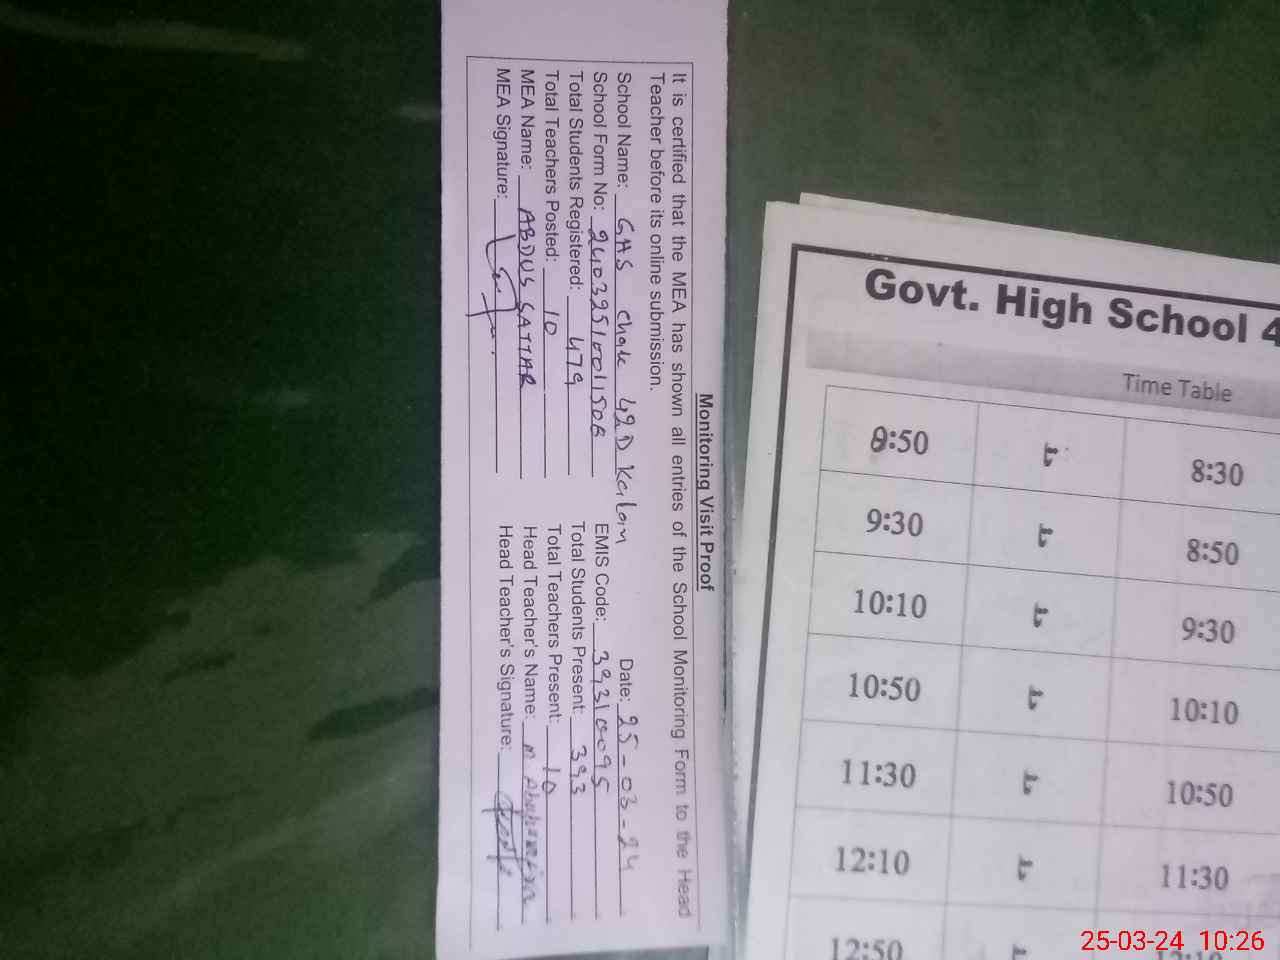 Monitoring Visit Proof
It is certified that the MEA has shown all entries of the School Monitoring Form to the Head
Teacher before its online submission.
School Name: GHS Chak 42D Kalam Date: 25-03-24
School Form No: 24032510011508 EMIS Code: 39310095
Total Students Registered: 479 Total Students Present: 393
Total Teachers Posted: 10 Total Teachers Present: 10
MEA Name: ABDUS SATTAR Head Teacher's Name: M
MEA Signature: Head Teacher's Signature:
Govt. High School 4
Time Table
8:50 تا 8:30
9:30 تا 8:50
10:10 تا 9:30
10:50 تا 10:10
11:30 تا 10:50
12:10 تا 11:30
12:50 تا 12:10
25-03-24 10:26